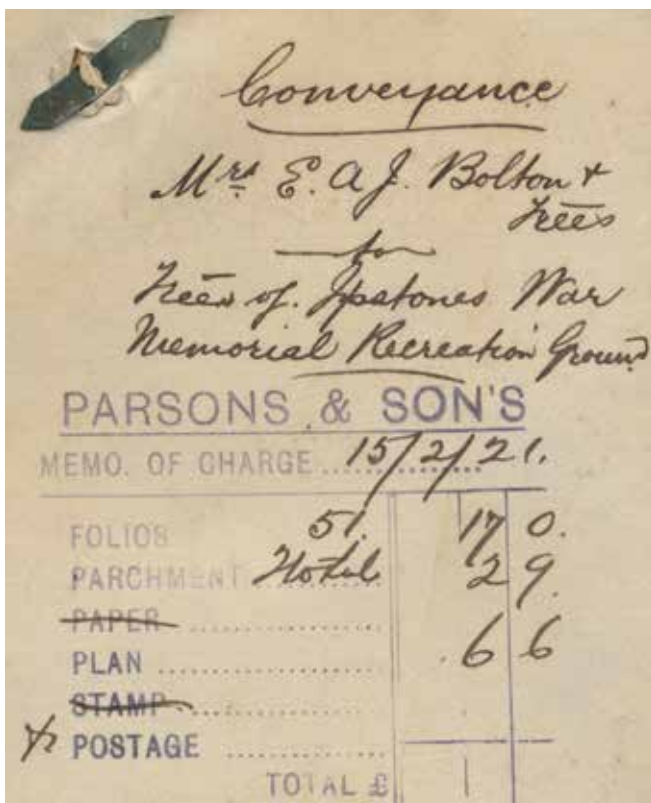 Conveyance
Mrs E. A J. Bolton &
Trees
to
Trees of. Ipstones War
Memorial Recreation Ground
PARSONS & SON'S
MEMO. OF CHARGE ... 15/2/21.
FOLIOS 51. 17 0.
PARCHMENT 2 9.
PAPER
PLAN 6 6
STAMP
POSTAGE
TOTAL £ 1